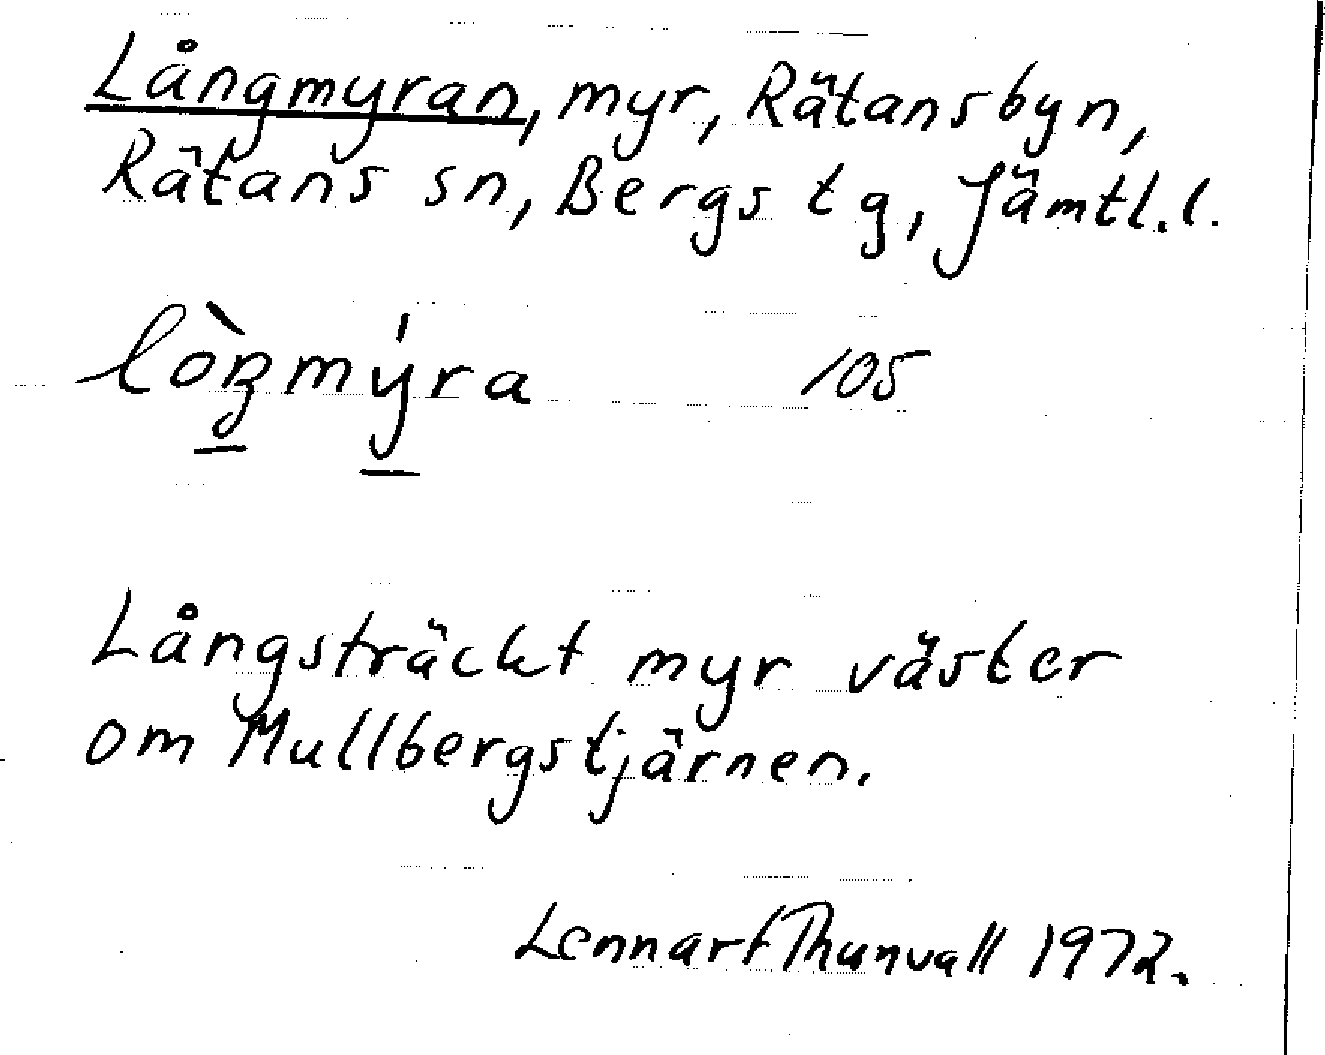 Långmyran, myr, Rätansbyn,
Rätans sn, Bergs tg, Jämtl.l.
lòŋmýra 105
Långsträckt myr väster
om Mullbergstjärnen.
Lennart Thunvall 1972.